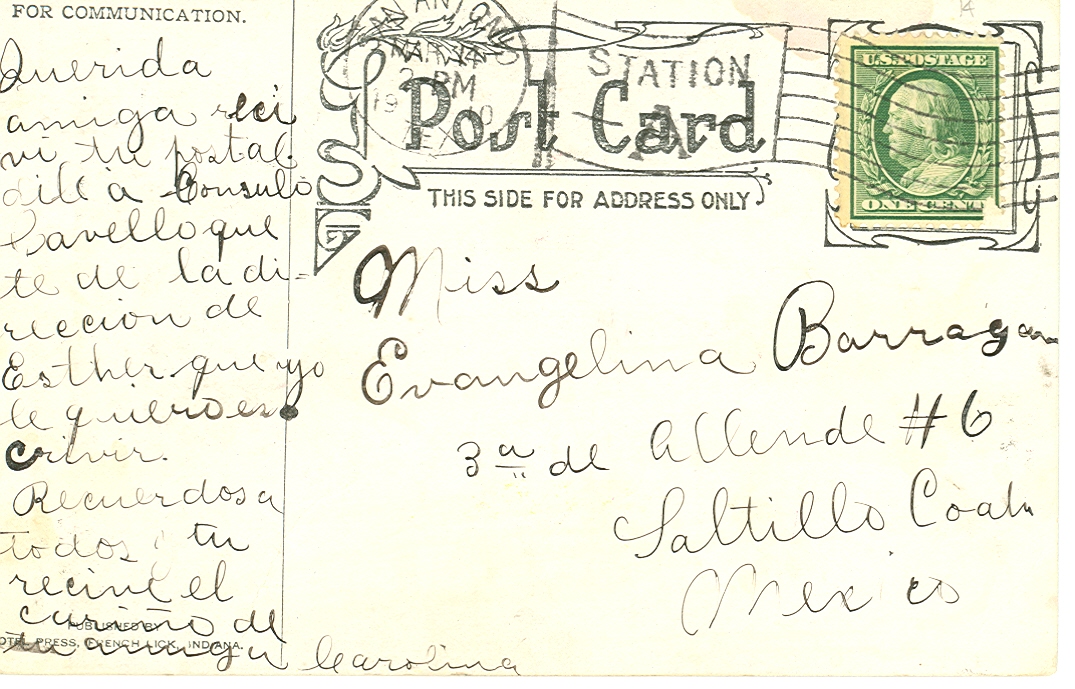 FOR COMMUNICATION.
Querida
amiga reci
vi tu postal.
dile a Consulo
Cavello que
te de la di-
reccion de
Esther. que yo
le quiero es
crivir.
Recuerdos a
todos tu
recive el
cariño de
tu amiga Carolina
PUBLISHED BY
HOTEL PRESS, FRENCH LICK, INDIANA.
SAN ANTONIO
MAR 14
2 PM
1910
TEX
STATION
A
Post Card
THIS SIDE FOR ADDRESS ONLY
U.S. POSTAGE
ONE CENT
14
Miss
Evangelina Barragan
3a de Allende #6
Saltillo Coah
Mexico